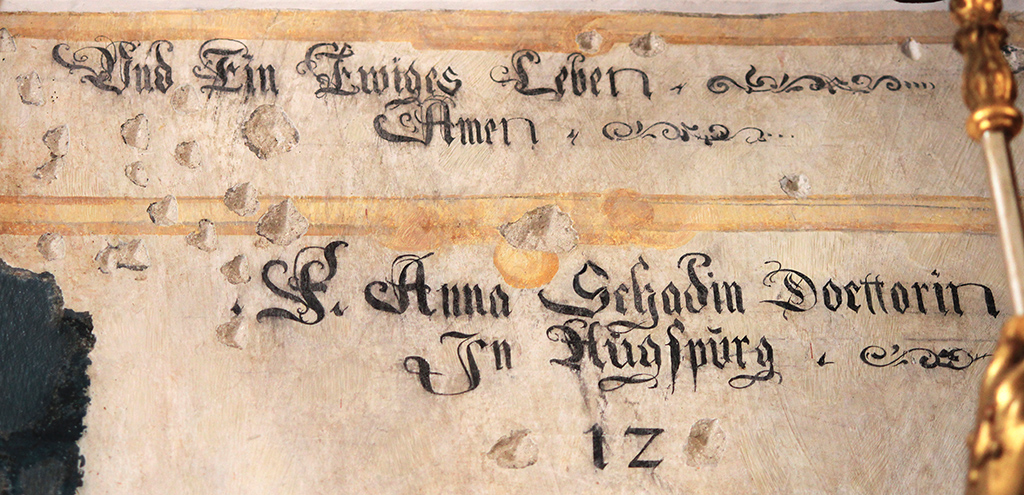 Vnd Ein Ewiges Leben.
Amen.
F. Anna Schadin Docttorin
In Augspurg.
12